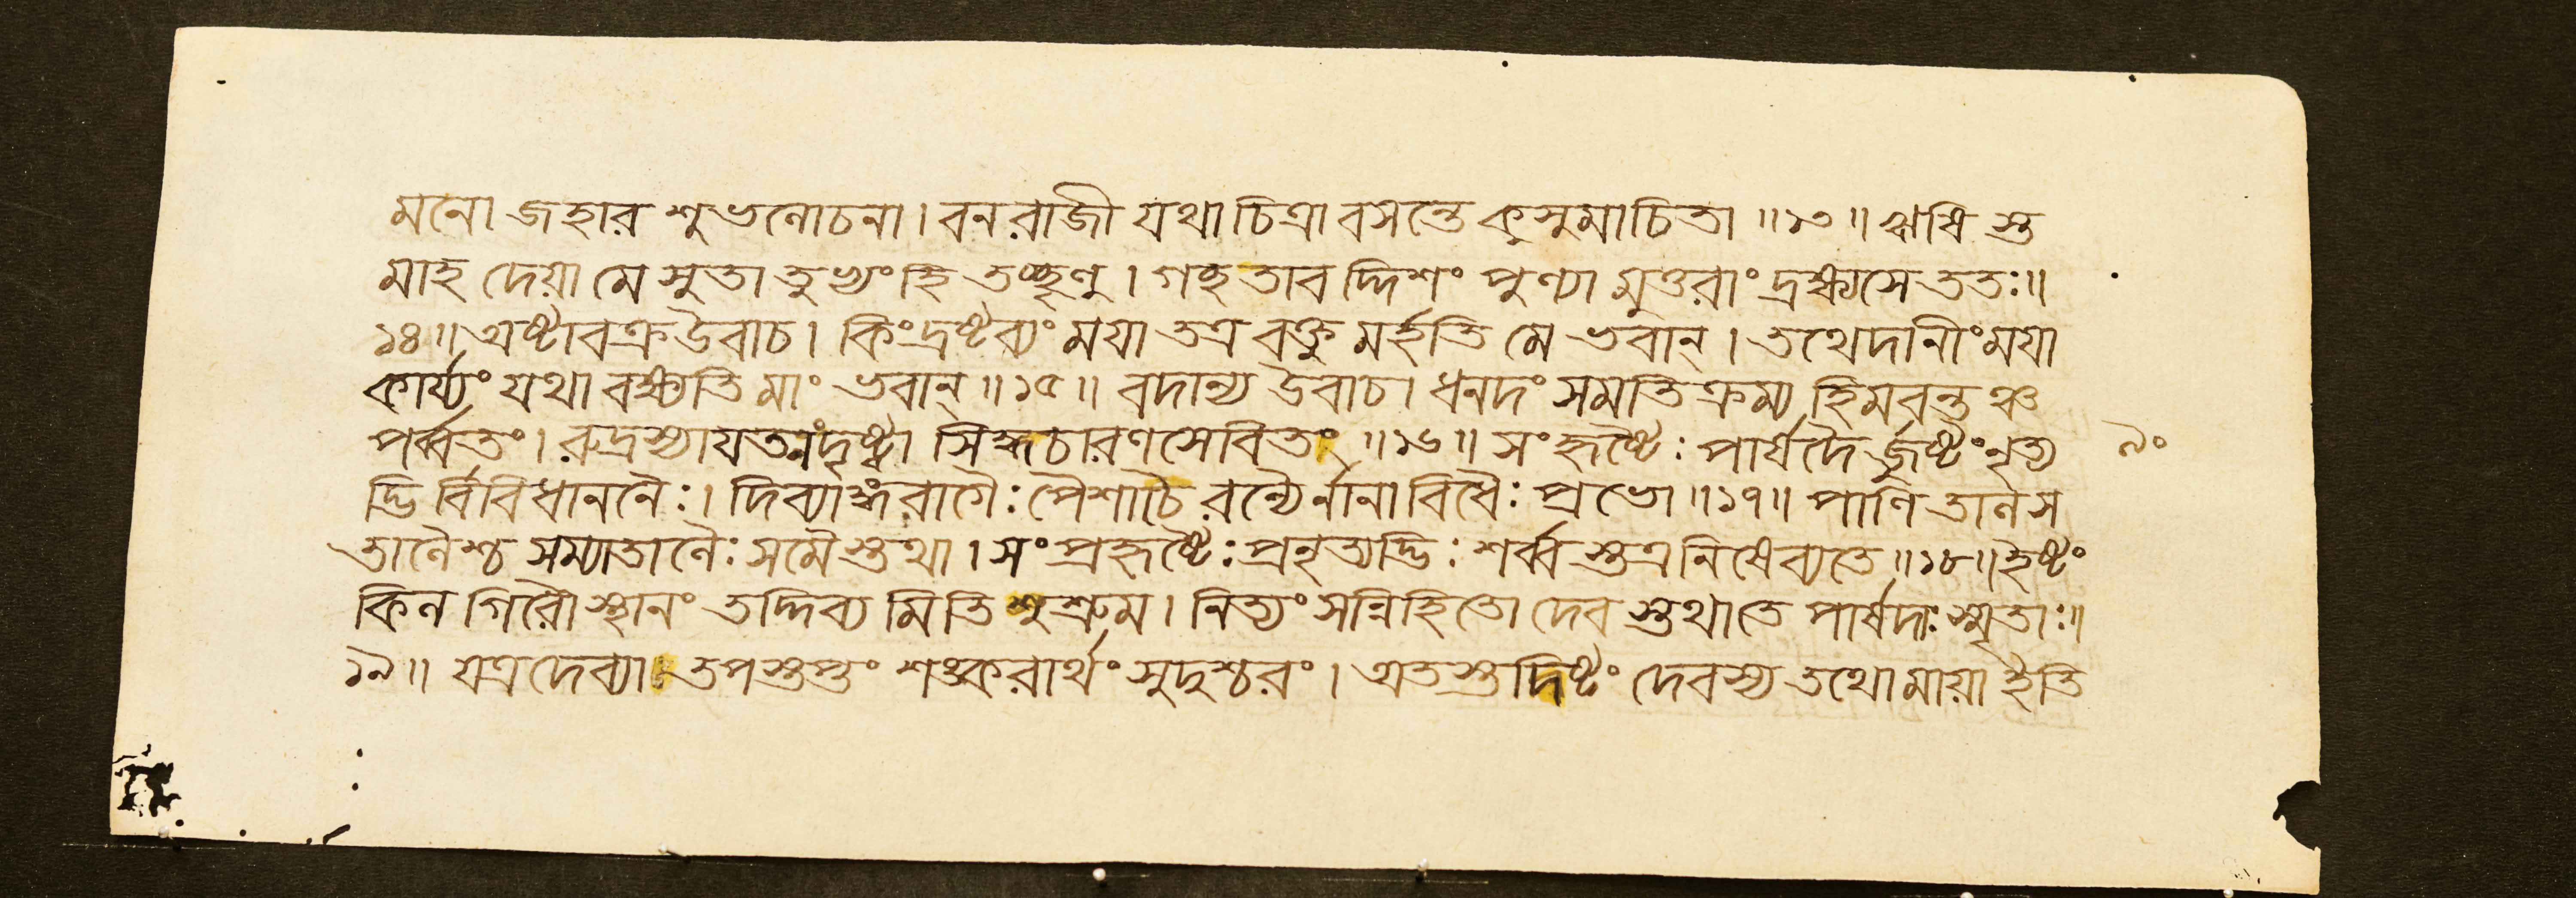 মনো জহার শুভলোচনা। বনরাজী যথা চিত্রা বসন্তে কুসুমাচিতা ॥১৩॥ ঋষি স্তু
মাহ দেয়া মে সুতা তুভ্যং হি তচ্ছৃণু। গচ্ছ তাবদ্দিশং পুণ্যা মুত্তরাং দ্রক্ষ্যসে ততঃ॥
১৪॥ অষ্টাবক্র উবাচ। কিংদ্রষ্টব্যং ময়া তত্র বক্তু মর্হতি মে ভবান্। তথেদানীং ময়া
কার্য্যং যথা বক্ষ্যতি মাং ভবান্॥১৫॥ বদান্য উবাচ। ধনদং সমতিক্রম্য হিমবন্তঞ্চ
পর্ব্বতং। রুদ্রস্যায়তনংদৃষ্ট্বা সিদ্ধচারণসেবিতং॥১৬॥ সংহৃষ্টৈঃ পার্ষদৈ র্জুষ্টংনৃত্য ৯০
দ্ভি র্বিবিধাননৈঃ। দিব্যাঙ্গরাগৈঃ পৈশাচৈ রন্যৈর্নানাবিধৈঃ প্রভো॥১৭॥ পাণিতালস
তালৈশ্চ সম্যাতালৈঃ সমৈস্তথা। সংপ্রহৃষ্টৈঃ প্রনৃত্যদ্ভিঃ শর্ব্বস্তত্র নিষেব্যতে॥১৮॥ ইষ্টং
কিল গিরৌ স্থানং তদ্দিব্য মিতি শুশ্রুম। নিত্যং সন্নিহিতো দেব স্তথাতে পার্ষদাঃ স্মৃতাঃ॥
১৯॥ যত্রদেব্যা তপস্তপ্তং শঙ্করার্থং সুদুশ্চরং। অতস্তদিষ্টং দেবস্য তথোমায়া ইতি